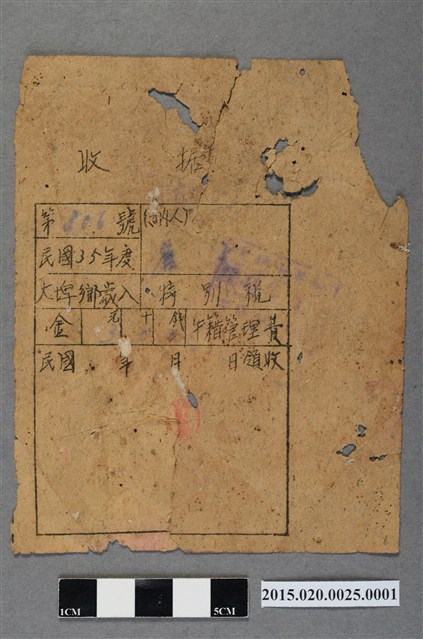 收據
第806號 (納人)
民國35年度
大埤鄉歲入 特別稅
金 元 十 錢 牛籍管理費
民國 年 月 日領收
1CM 5CM
2015.020.0025.0001